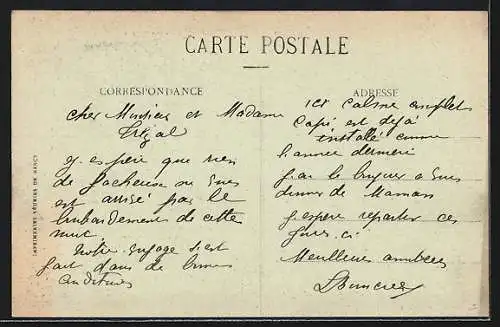 CARTE POSTALE
CORRESPONDANCE
cher Monsieur et Madame
j'espère que rien
de facheux ne vous
est arrivé par le
bombardement de cette
nuit
Notre voyage s'est
fait dans de bonnes
conditions
IMPRIMERIES RÉUNIES DE NANCY
ADRESSE
ici calme complet
Capé est déjà
installé comme
l'année dernière
de Maman
j'espère repartir ces
jours ci
Meilleures amitiés